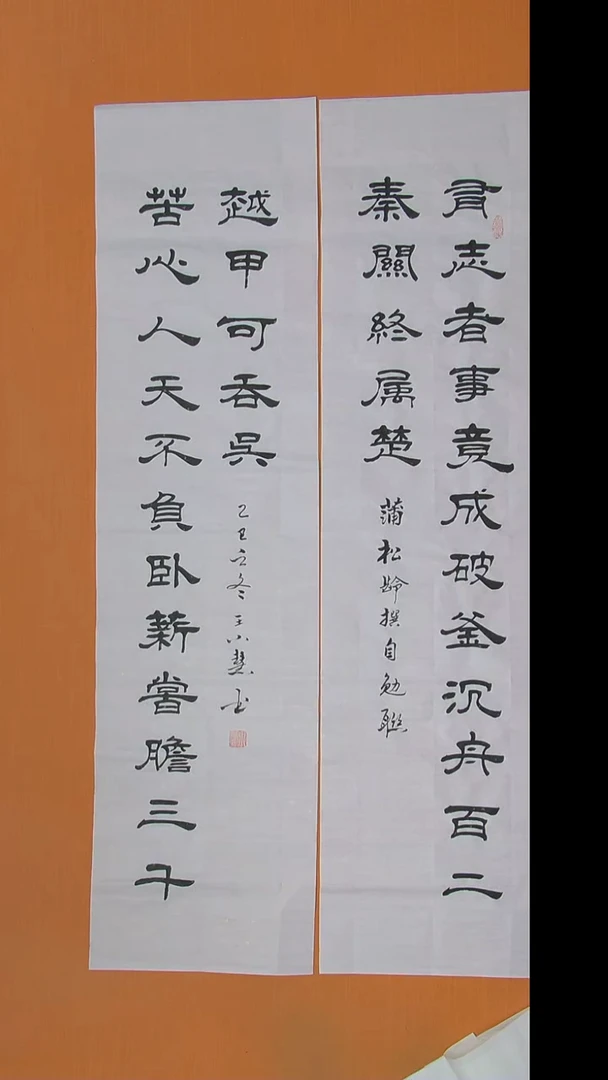 有志者事竟成破釜沉舟百二
秦關終属楚
蒲松齡撰自勉聯
苦心人天不負卧薪嘗膽三千
越甲可吞吳
乙巳立冬王小慧书